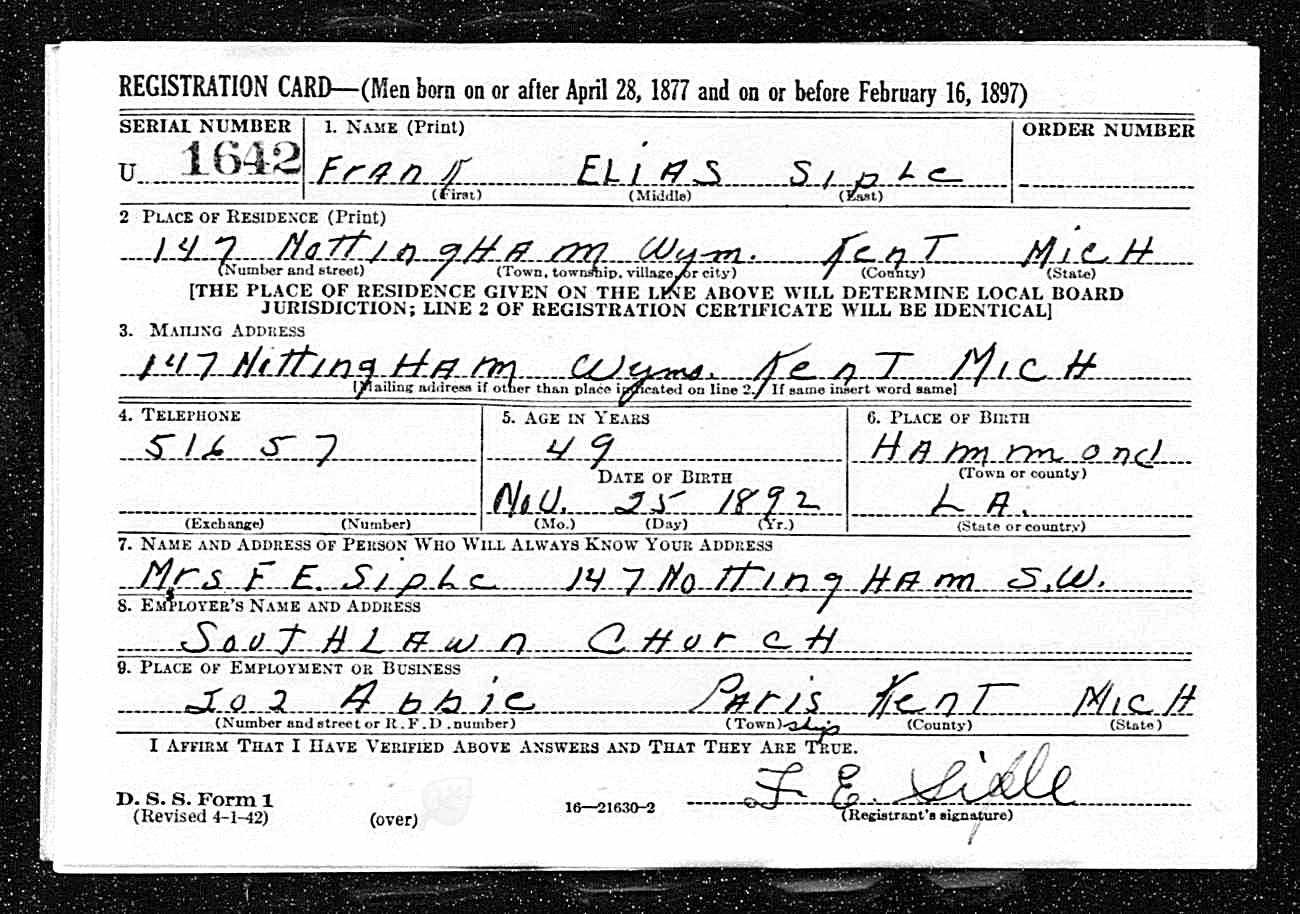 REGISTRATION CARD—(Men born on or after April 28, 1877 and on or before February 16, 1897)
SERIAL NUMBER 1. NAME (Print) ORDER NUMBER
U 1642 FrAnK ELiAS SipLe
(First) (Middle) (Last)
2 PLACE OF RESIDENCE (Print)
147 NottingHAm Wym. KenT MicH
(Number and street) (Town, township, village, or city) (County) (State)
[THE PLACE OF RESIDENCE GIVEN ON THE LINE ABOVE WILL DETERMINE LOCAL BOARD
JURISDICTION; LINE 2 OF REGISTRATION CERTIFICATE WILL BE IDENTICAL]
3. MAILING ADDRESS
147 NottingHAm Wymo. KenT MicH
[Mailing address if other than place indicated on line 2. If same insert word same]
4. TELEPHONE 5. AGE IN YEARS 6. PLACE OF BIRTH
516 57 49 HAmmond
DATE OF BIRTH (Town or county)
Nov. 25 1892 LA.
(Exchange) (Number) (Mo.) (Day) (Yr.) (State or country)
7. NAME AND ADDRESS OF PERSON WHO WILL ALWAYS KNOW YOUR ADDRESS
Mrs F E. SipLe 147 NottingHAm S.W.
8. EMPLOYER'S NAME AND ADDRESS
SouTHLAwn CHurcH
9. PLACE OF EMPLOYMENT OR BUSINESS
202 Abbie PAris KenT MicH
(Number and street or R. F. D. number) (Town) ship (County) (State)
I AFFIRM THAT I HAVE VERIFIED ABOVE ANSWERS AND THAT THEY ARE TRUE.
F. E. Siple
D. S. S. Form 1 16—21630-2 (Registrant's signature)
(Revised 4-1-42) (over)